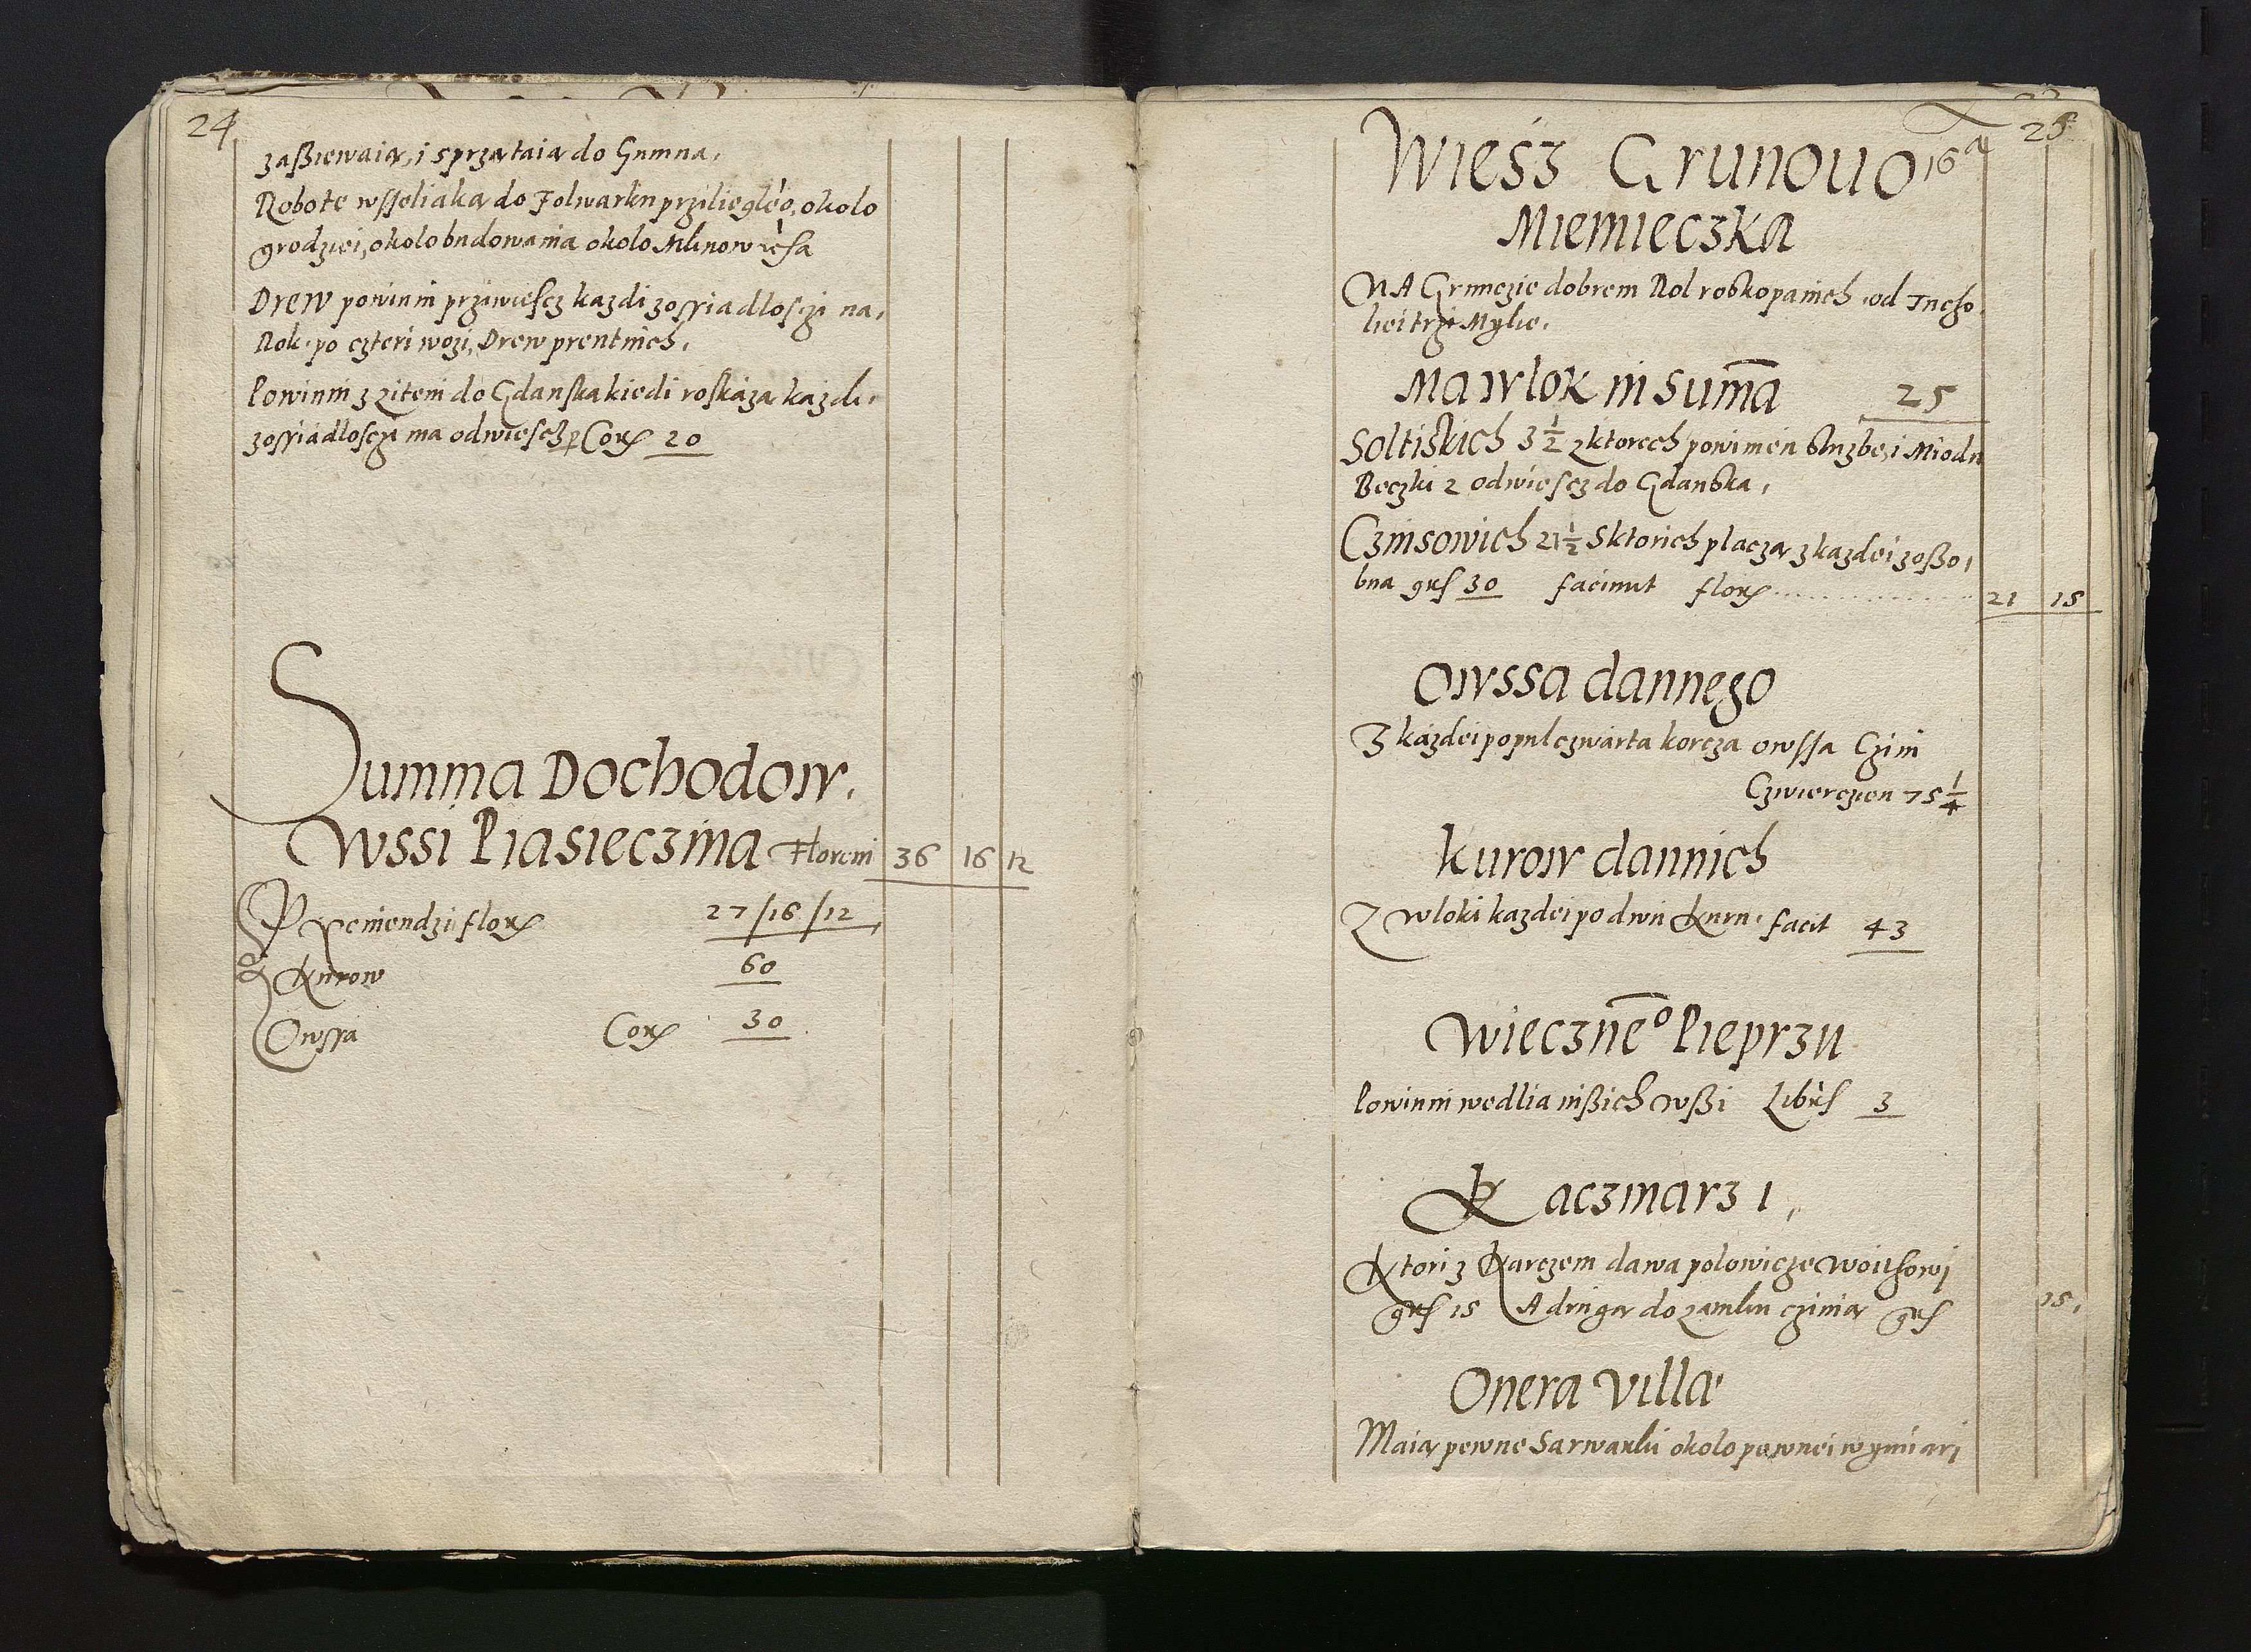 24
zaßiewaią, i sprzątaią do Gumna,
Robote wsseliaką do Folwarku przilieglė̃o, okolo
grodziei, okolo budowania okolo Mlinow
Drew powinni prziwiescz kazdi zossiadlosczi na,
Rok po czteri wozi, Drew prentnich,
Powinni z zitem do Gdanska kiedi roskazą kazdi,
zossiadlosczi ma odwiescz p Corꝝ 20
Summa Dochodow,
Wssi Piasieczina Floreni 36 16 12
Pieniendzi florꝝ 27/16/12
Kurow 60
Owssa Corꝝ 30
25
Wiesz Grunouo 16 a
Niemieczka
NA Grunczie dobrem Rol roskopanich, od Tucho,
liei trzi Mylie,
Ma wlok in suma̅ 25
Soltiskich 3 1/2 z ktorech powinien sluzbe, i Miodu
Beczki 2 odwiescz do Gdanska,
Czinsowich 21 1/2 S ktorich placzą z kazdei zoßo,
bna grs 30 faciunt florꝝ 21 15
Owssa dannego
Z kazdei popul czwarta korcza owssa Czini
Czwierczien 75 1/4
Kurow dannich
Z wloki kazdei po dwu Kuru, facit 43
Wiecznė̃o Pieprzu
Powinni wedlia inßich wßi Librs 3
Kaczmarzi,
Ktori z Karczem dawa polowicze Woithowi
grs 15 A drugą do zamku czinią grs 15,
Onera Villæ
Maią pewne Sarwarki okolo pewnei wymiari